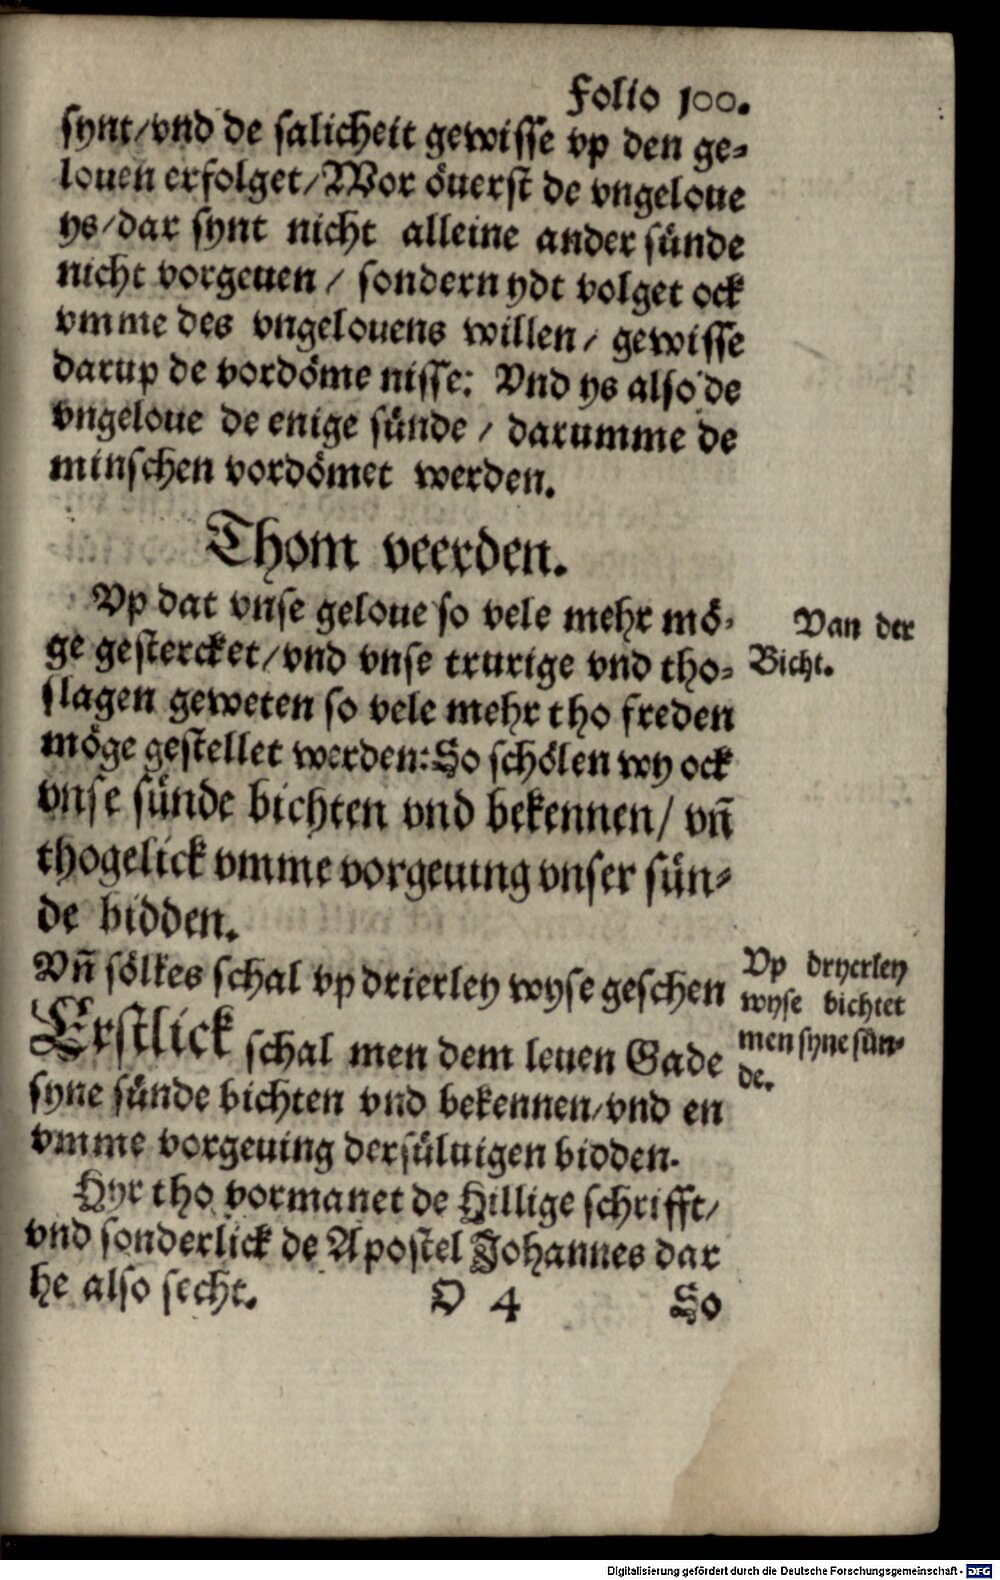 Folio 100.
synt/vnd de salicheit gewisse vp den ge-
louen erfolget/Wor öuerst de vngeloue
ys/dar synt nicht alleine ander sünde
nicht vorgeuen / sondern ydt volget ock
vmme des vngelouens willen / gewisse
darup de vordöme nisse: Vnd ys also de
vngeloue de enige sünde / darumme de
minschen vordömet werden.
Thom veerden.
Vp dat vnse geloue so vele mehr mö-
ge gestercket/vnd vnse trurige vnd tho-
slagen geweten so vele mehr tho freden
möge gestellet werden: So schölen wy ock
vnse sünde bichten vnd bekennen/ vñ
thogelick vmme vorgeuing vnser sün-
de bidden.
Van der
Bicht.
Vñ sölkes schal vp drierley wyse geschen
Erstlick schal men dem leuen Gade
syne sünde bichten vnd bekennen/vnd en
vmme vorgeuing dersüluigen bidden.
Vp dryerley
wyse bichtet
men syne sün-
de.
Hyr tho vormanet de Hillige schrifft/
vnd sonderlick de Apostel Johannes dar
he also secht.
D 4
So
Digitalisierung gefördert durch die Deutsche Forschungsgemeinschaft - DFG